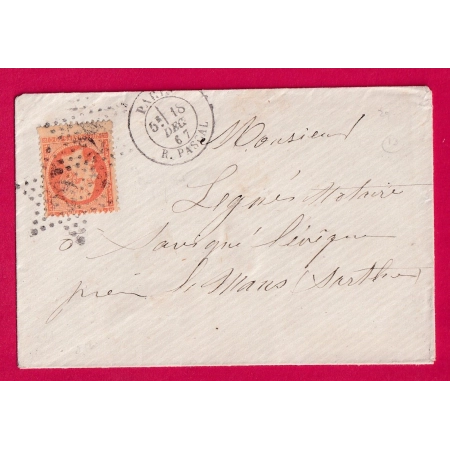 PARIS
5E 18
DEC
67
R. PASCAL
Monsieur
Legué Notaire
à Savigné l'évêque
près Le Mans Sarthe